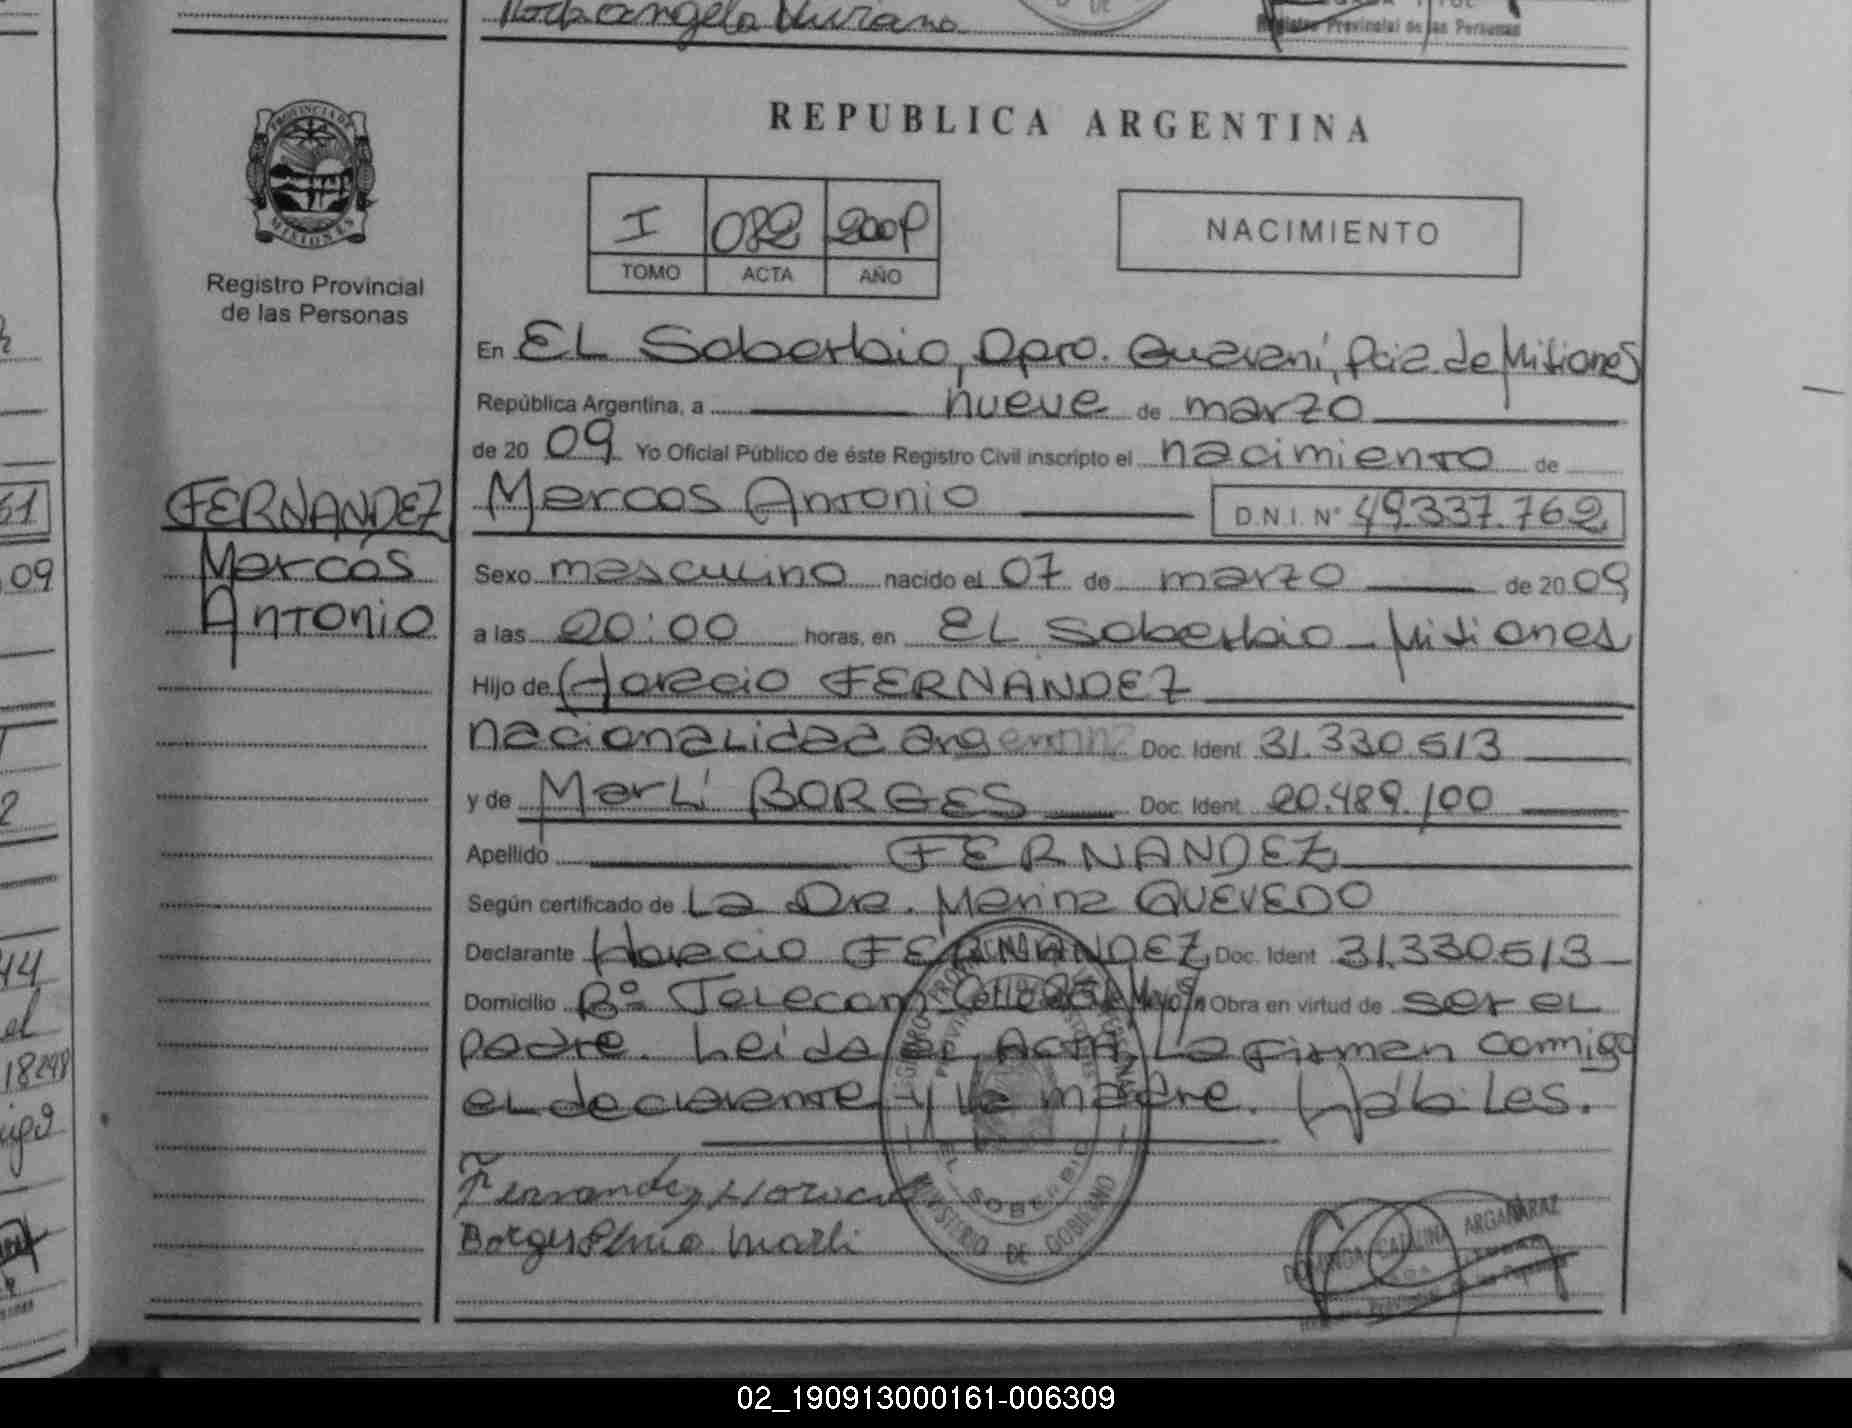 Registro Provincial de las Personas
PROVINCIA DE
MISIONES
Registro Provincial
de las Personas
REPUBLICA ARGENTINA
I 082 2009
TOMO ACTA AÑO
NACIMIENTO
En EL Soberbio, Dpto. Guaraní, Pcia. de Misiones
República Argentina, a nueve de marzo
de 20 09 Yo Oficial Público de éste Registro Civil inscripto el nacimiento de
FERNANDEZ
Marcos
Antonio
Marcos Antonio D.N.I. N° 49.337.762
Sexo masculino nacido el 07 de marzo de 20 09
a las 20:00 horas, en EL Soberbio - Misiones
Hijo de Horacio FERNANDEZ
nacionalidad argentina Doc. Ident. 31.330.513
y de Marlí BORGES Doc. Ident. 20.489.100
Apellido FERNANDEZ
Según certificado de La Dra. Marina QUEVEDO
Declarante Horacio FERNANDEZ Doc. Ident. 31.330.513
Domicilio B° Telecom Calle de Mayo s/n Obra en virtud de ser el
padre. Leida el Acta, La firman conmigo
el declarante y la madre. Hábiles.
Fernandez Horacio
Borges Marli
EL SOBERBIO
MINISTERIO DE GOBIERNO
DOMINGA CATALINA ARGAÑARAZ
51
09
2
44
el
18248
02_190913000161-006309